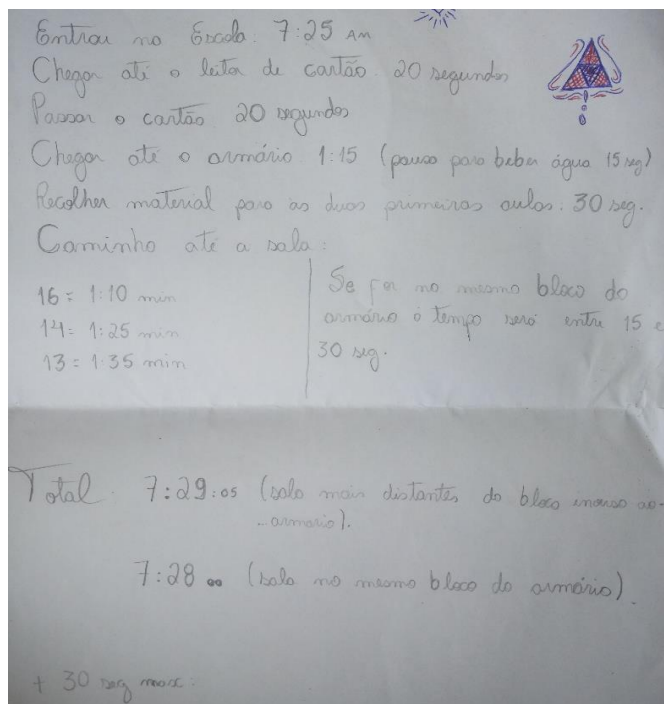 Entrou no Escola: 7:25 AM
Chegar até o leitor de cartão: 20 segundos
Passar o cartão 20 segundos
Chegar até o armário 1:15 (pausa para beber água 15 seg)
Recolher material para as duas primeiras aulas: 30 seg.
Caminho até a sala:
16 = 1:10 min
14 = 1:25 min
13 = 1:35 min
Se for no mesmo bloco do
armário o tempo será entre 15 e
30 seg.
Total: 7:29:05 (sala mais distantes do bloco inverso ao
armario).
7:28 00 (sala no mesmo bloco do armário).
+ 30 seg max: